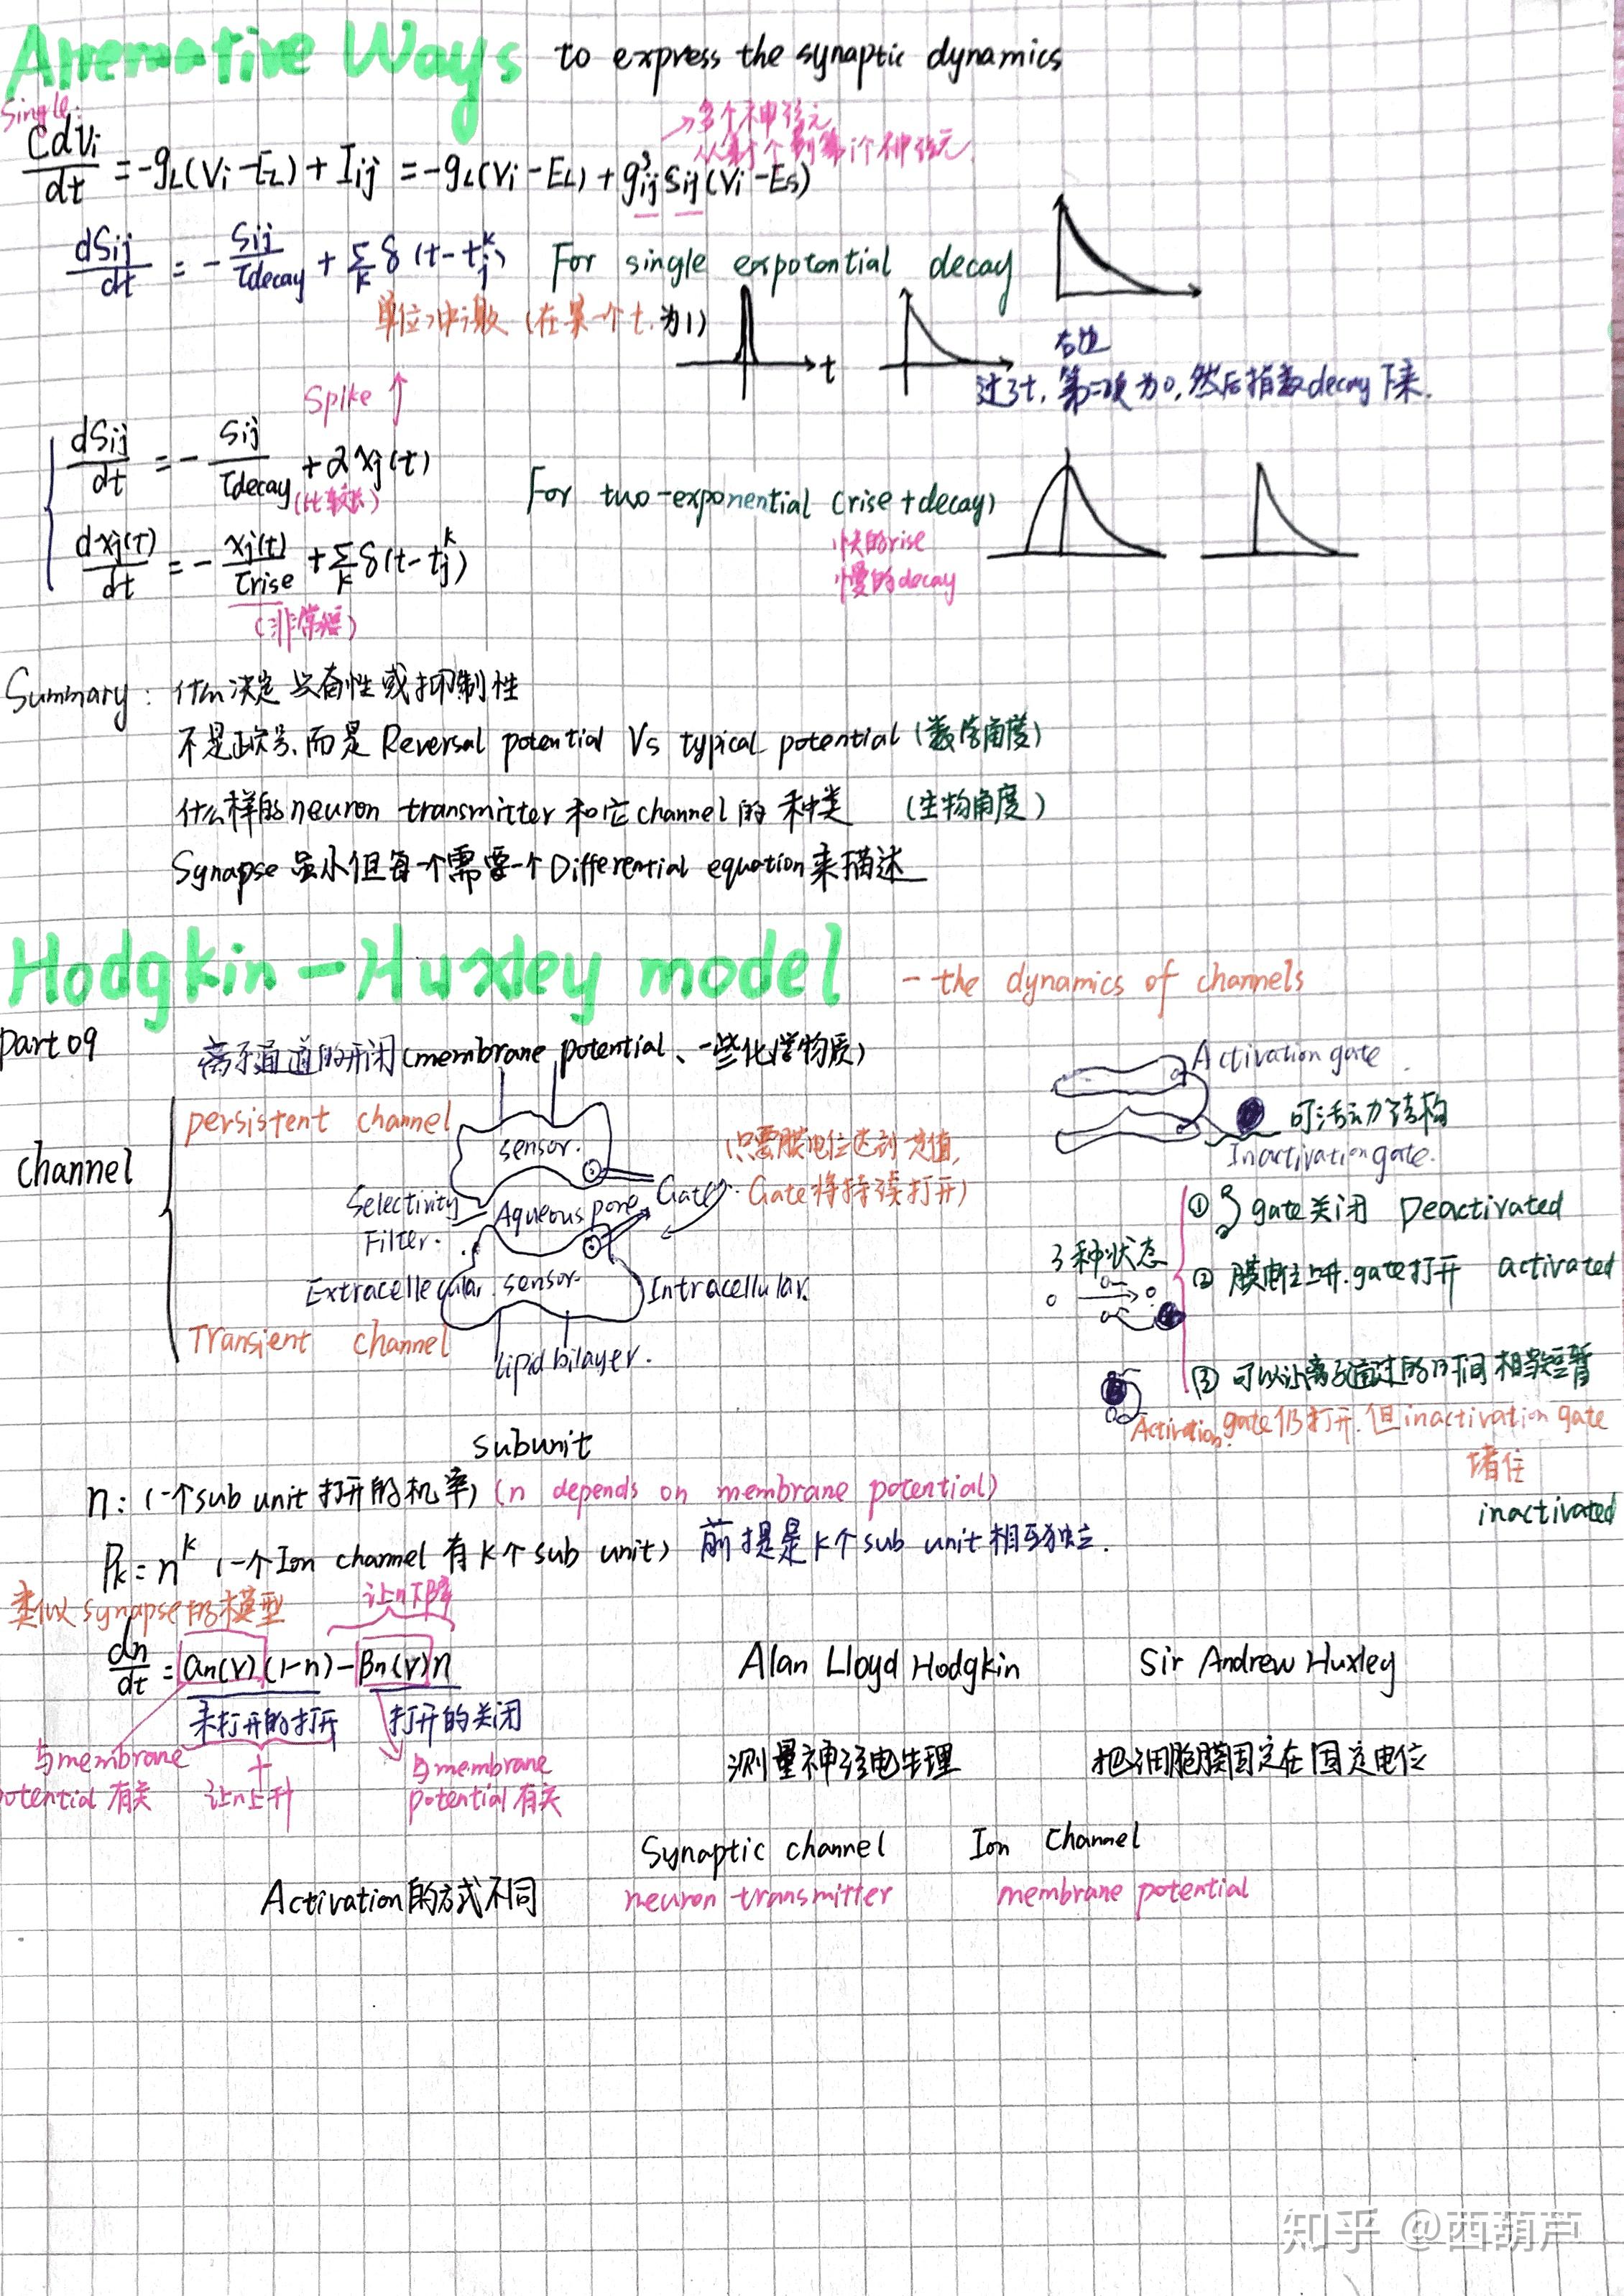 Alternative Ways to express the synaptic dynamics
Single:
→多个神经元
从第j个到第i个神经元
CdVi/dt = -gL(Vi-EL) + Iij = -gL(Vi-EL) + gijSij(Vi-Es)
dSij/dt = - Sij/τdecay + Σk δ(t-tj^k) For single expotential decay
单位冲激 (在某一个t.为1)
t
右边
过了t, 第二项为0, 然后指数decay下来.
Spike ↑
dSij/dt = - Sij/τdecay + αxj(t)
(比较长)
For two-exponential (rise+decay)
快的rise
慢的decay
dxj(t)/dt = - xj(t)/τrise + Σk δ(t-tj^k)
(非常短)
Summary: 什么决定兴奋性或抑制性
不是正负号,而是 Reversal potential Vs typical potential (数学角度)
什么样的neuron transmitter 和它channel的 种类 (生物角度)
Synapse 虽小但每一个需要一个Differential equation来描述
Hodgkin-Huxley model - the dynamics of channels
Part 09
离子通道的开闭(membrane potential、一些化学物质)
Channel
persistent channel
sensor.
(只要膜电位达到一定值,
Gate将持续打开)
Gate.
Selectivity
Filter.
Aqueous pore
Extracellecular.
sensor.
Intracellular.
Transient channel
Lipid bilayer.
Activation gate
可活动结构
Inactivation gate.
3种状态
① gate关闭 Deactivated
② 膜电位上升.gate打开 activated
③ 可以让离子通过的时间相当短暂
Activation gate仍打开.但inactivation gate
堵住
inactivated
subunit
n: (一个sub unit 打开的机率) (n depends on membrane potential)
Pk = n^k (一个Ion channel 有k个sub unit) 前提是k个sub unit相互独立.
类似synapse的模型
让n下降
dn/dt = αn(V)(1-n) - βn(V)n
未打开的打开
打开的关闭
与membrane
potential 有关
+
让n上升
与membrane
potential 有关
Alan Lloyd Hodgkin Sir Andrew Huxley
测量神经电生理 把细胞膜固定在固定电位
Synaptic channel Ion Channel
Activation的方式不同 neuron transmitter membrane potential
知乎 @西葫芦